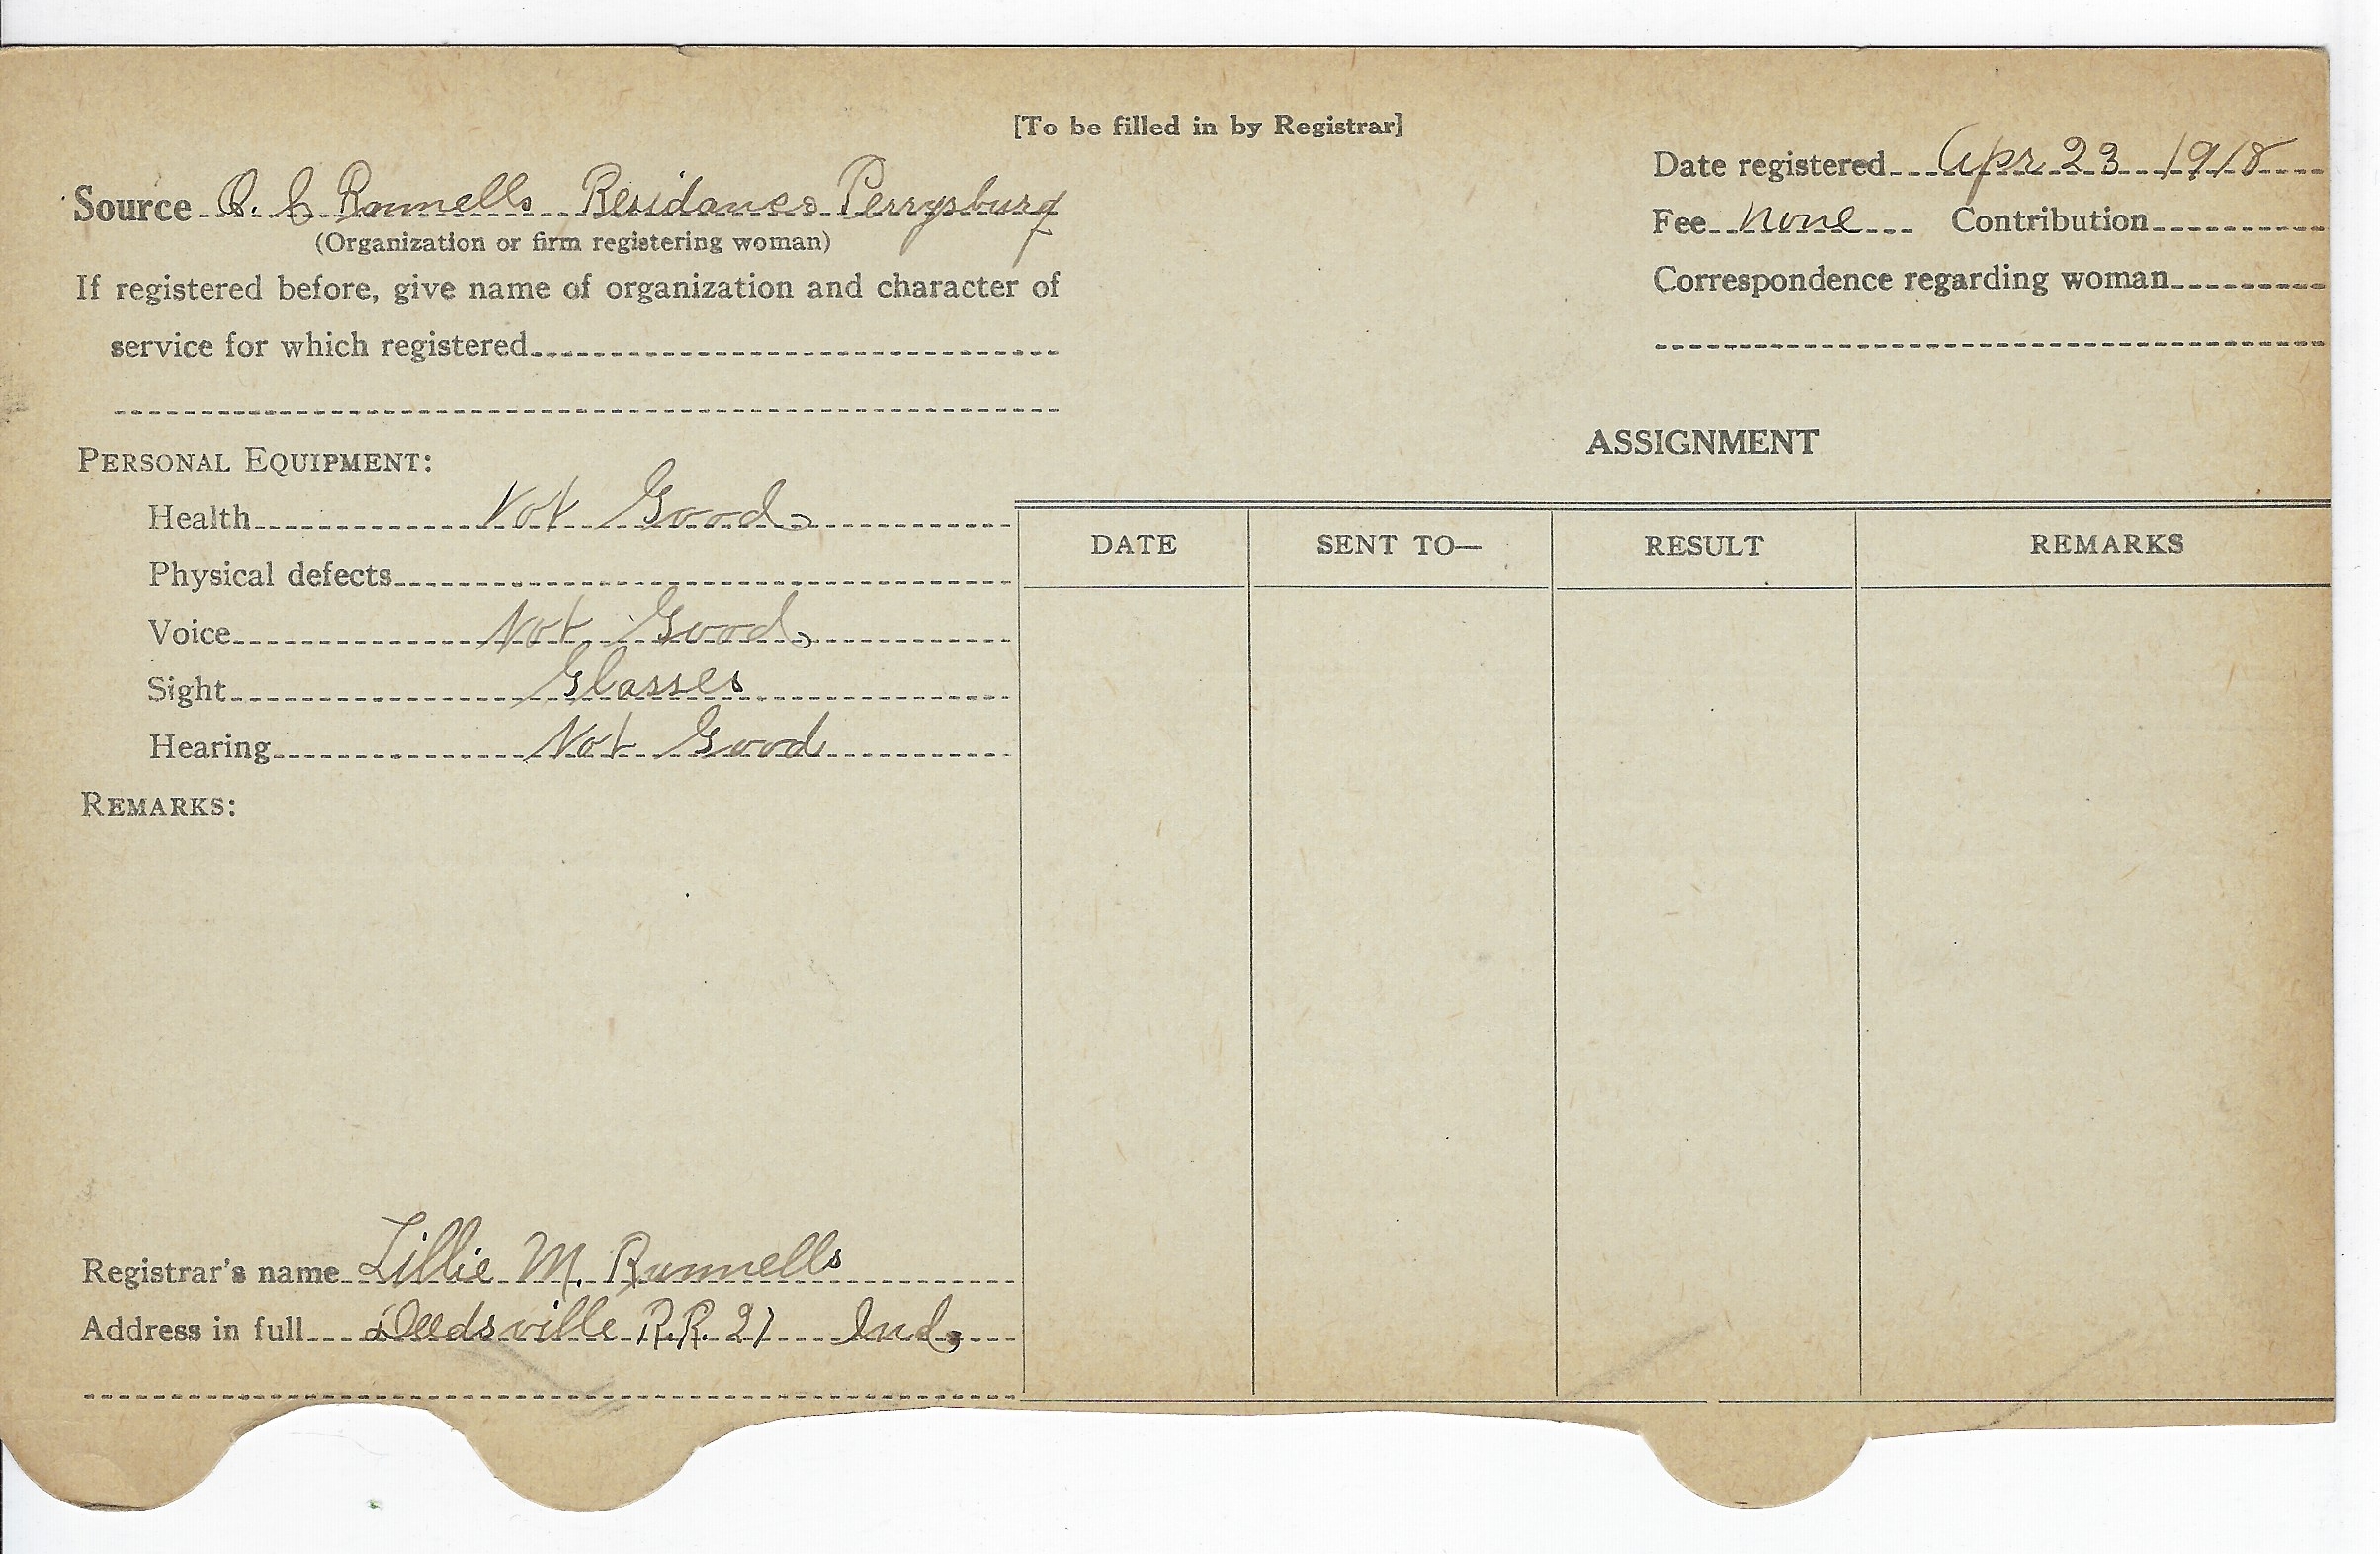 [To be filled in by Registrar]
Date registered Apr 23 1918
Source O. C Runnells Residance Perrysburg
(Organization or firm registering woman)
Fee none Contribution
If registered before, give name of organization and character of
service for which registered
Correspondence regarding woman
PERSONAL EQUIPMENT:
Health Not Good
Physical defects
Voice Not Good
Sight Glasses
Hearing Not Good
REMARKS:
Registrar's name Lillie M. Runnells
Address in full Deedsville R.R. 21 Ind.
ASSIGNMENT
DATE SENT TO— RESULT REMARKS